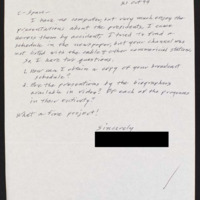 21 Oct 99
C-Span -
I have no computer, but very much enjoy the
presentations about the presidents. I came
across them by accident. I tried to find a
schedule in the newspaper, but your channel was
not listed with the cable & other commercial stations
So, I have two questions.
1. How can I obtain a copy of your broadcast
schedule?
2. Are the presentations by the biographers
available in video? Or each of the programs
in their entirety?
What a fine project!
Sincerely